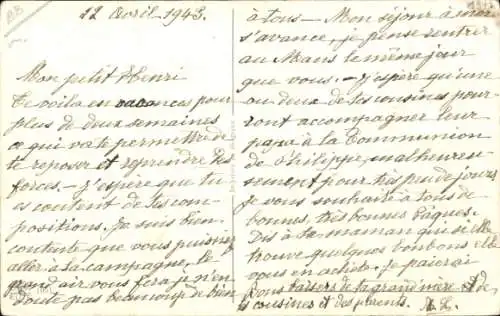 22 Avril 1943.
Mon petit Henri
Te voila en vacances pour
plus de deux semaines
ce qui va te permettre de
te reposer et reprendre des
forces — j'espère que tu
es content de tes com-
positions. Je suis bien
contente que vous puissiez
aller à la campagne, le
grand air vous fera je n'en
doute pas beaucoup de bien
à tous — Mon séjour à moi
s'avance, je pense rentrer
au Mans le même jour
que vous. — J'espère qu'une
ou deux de tes cousines pour-
ront accompagner leur
papa à la Communion
de Philippe, malheureu-
sement pour très peu de jours
je vous souhaite à tous de
bonnes, très bonnes Pâques.
Dis à ta maman que si elle
trouve quelques bonbons elle
vous en achète. Je paierai
Bons baisers de ta grand'mère et de
tes cousines et des parents.